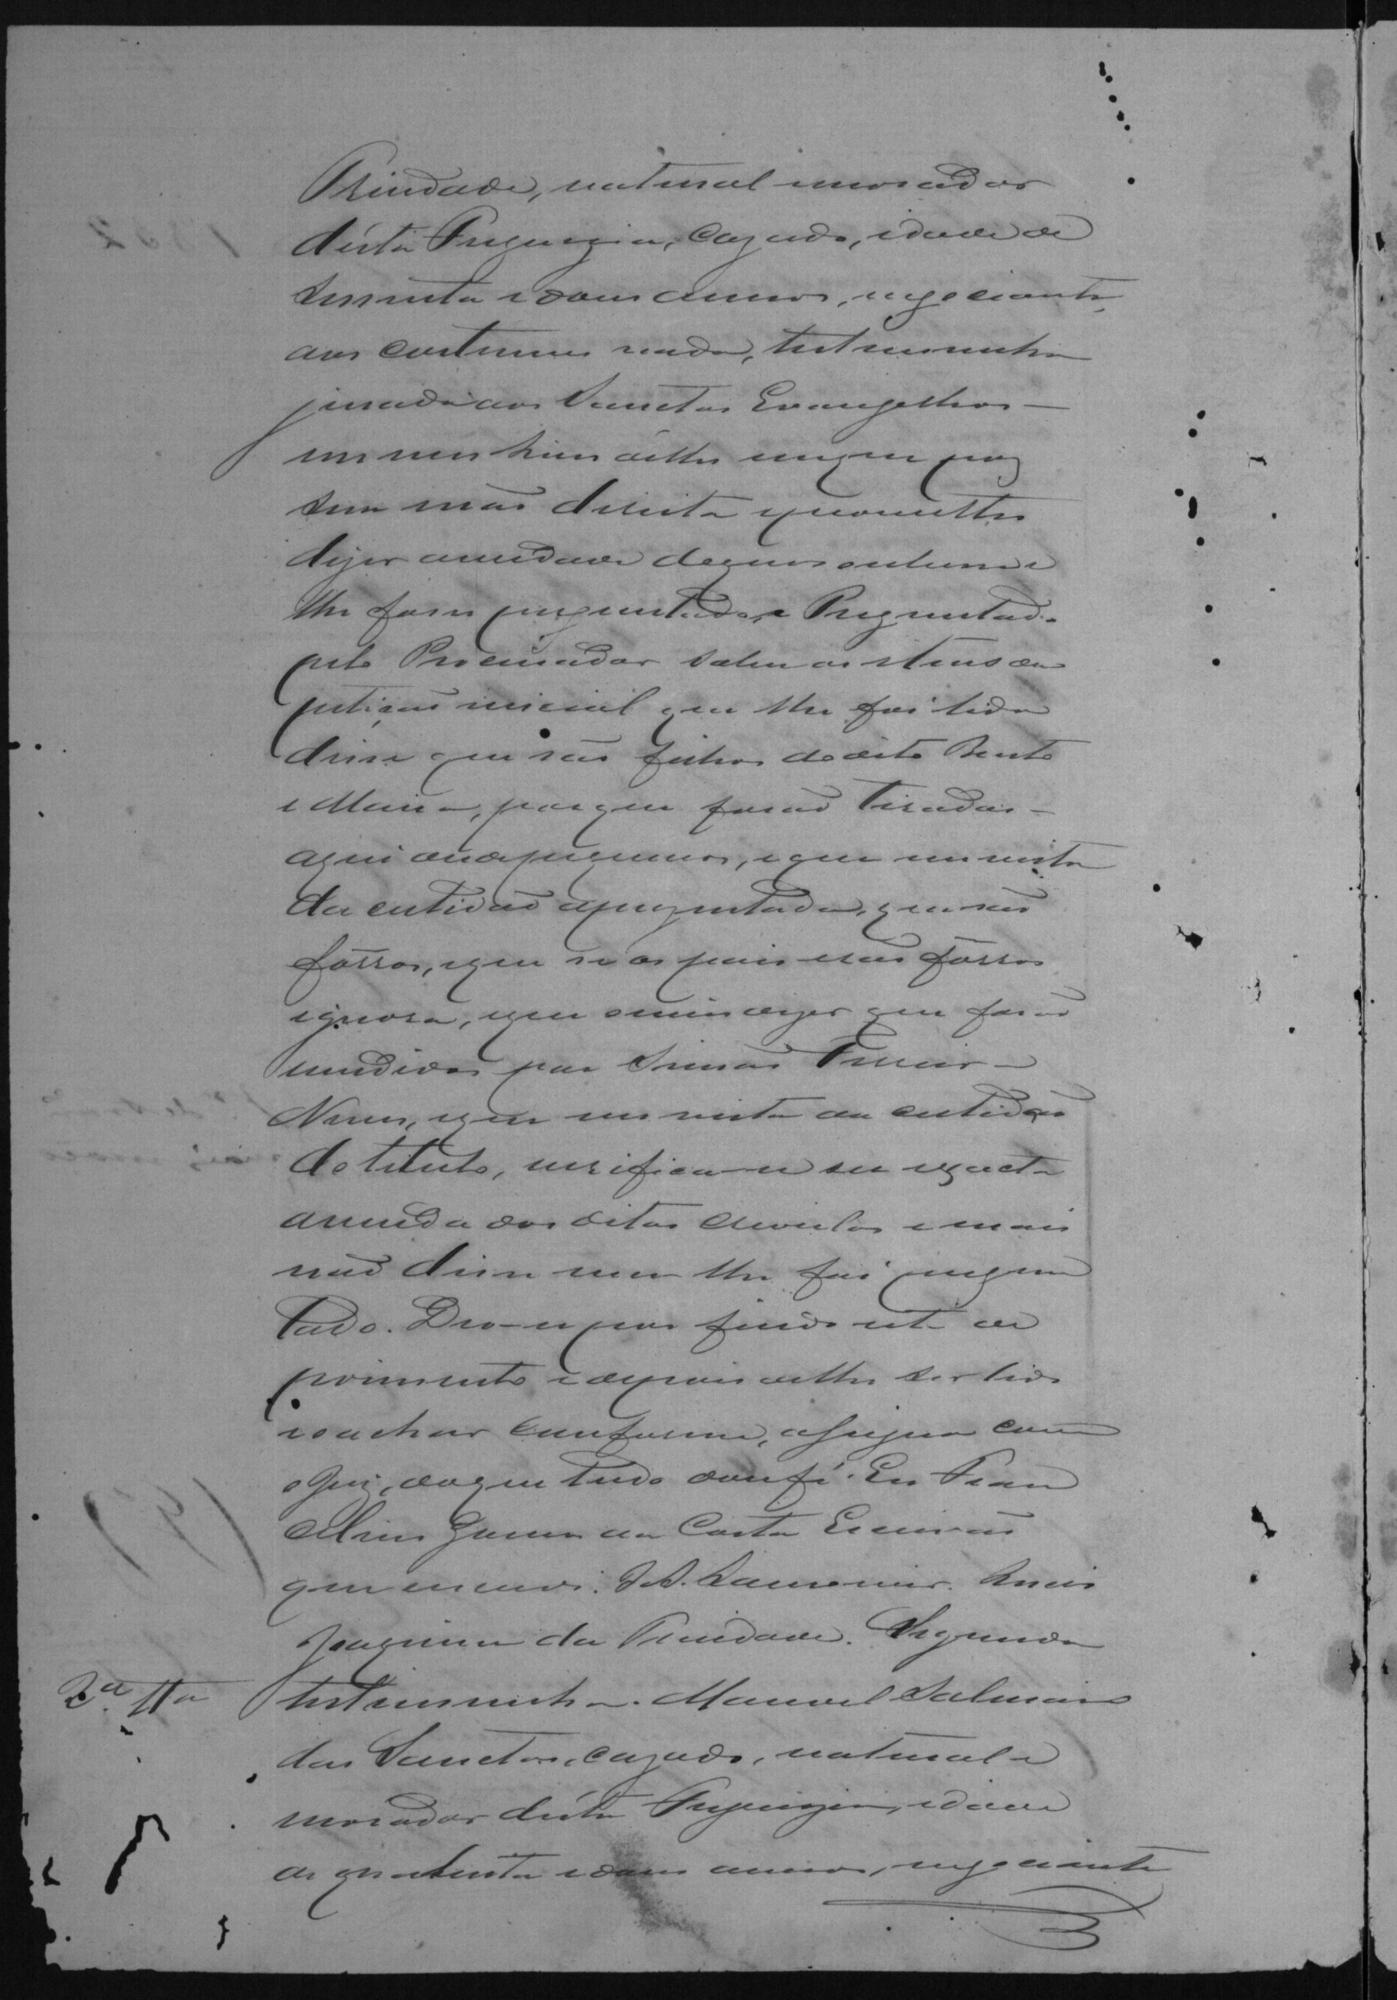 Trindade, natural morador
désta Freguezia, Cazado, idade de
secenta e dous annos, negociante,
aos custumes nada, testemunha
jurada aos Sanctos Evangelhos
em um livro delles em que poz
sua mão direita e prometteu
dizer a verdade do que soubesse e
lhe fosse perguntado, e Perguntado
pelo Procurador sobre os itens da
petição inicial que lhe foi lida
disse que são filhos do dito Bento
e Maria, por que forão Tirados
aqui de pequenos, e que em vista
da certidão aprezentada, que são
fôrros, e que se os pais erão fôrros
ignora, e que ouvio dizer que forão
vendidos por Simão Freire
Neves, e que em vista da certidão
do titulo, verifica-se ser exacta
a venda dos ditos escravos e mais
não disse nem lhe foi pergun
tado. Deo-se por findo este de
poimento e depois delle ser lido
e o achar conforme, assigna com
o Juiz, do que tudo dou fé. Eu Fran
celino Gomes da Costa Escrivão
que escrevi. Luis
Joaquim da Trindade. Segunda
2ª tta testemunha. Manoel Salmão
dos Sanctos, cazado, natural e
morador désta Freguezia, idade
de quarenta e dous annos, negociante